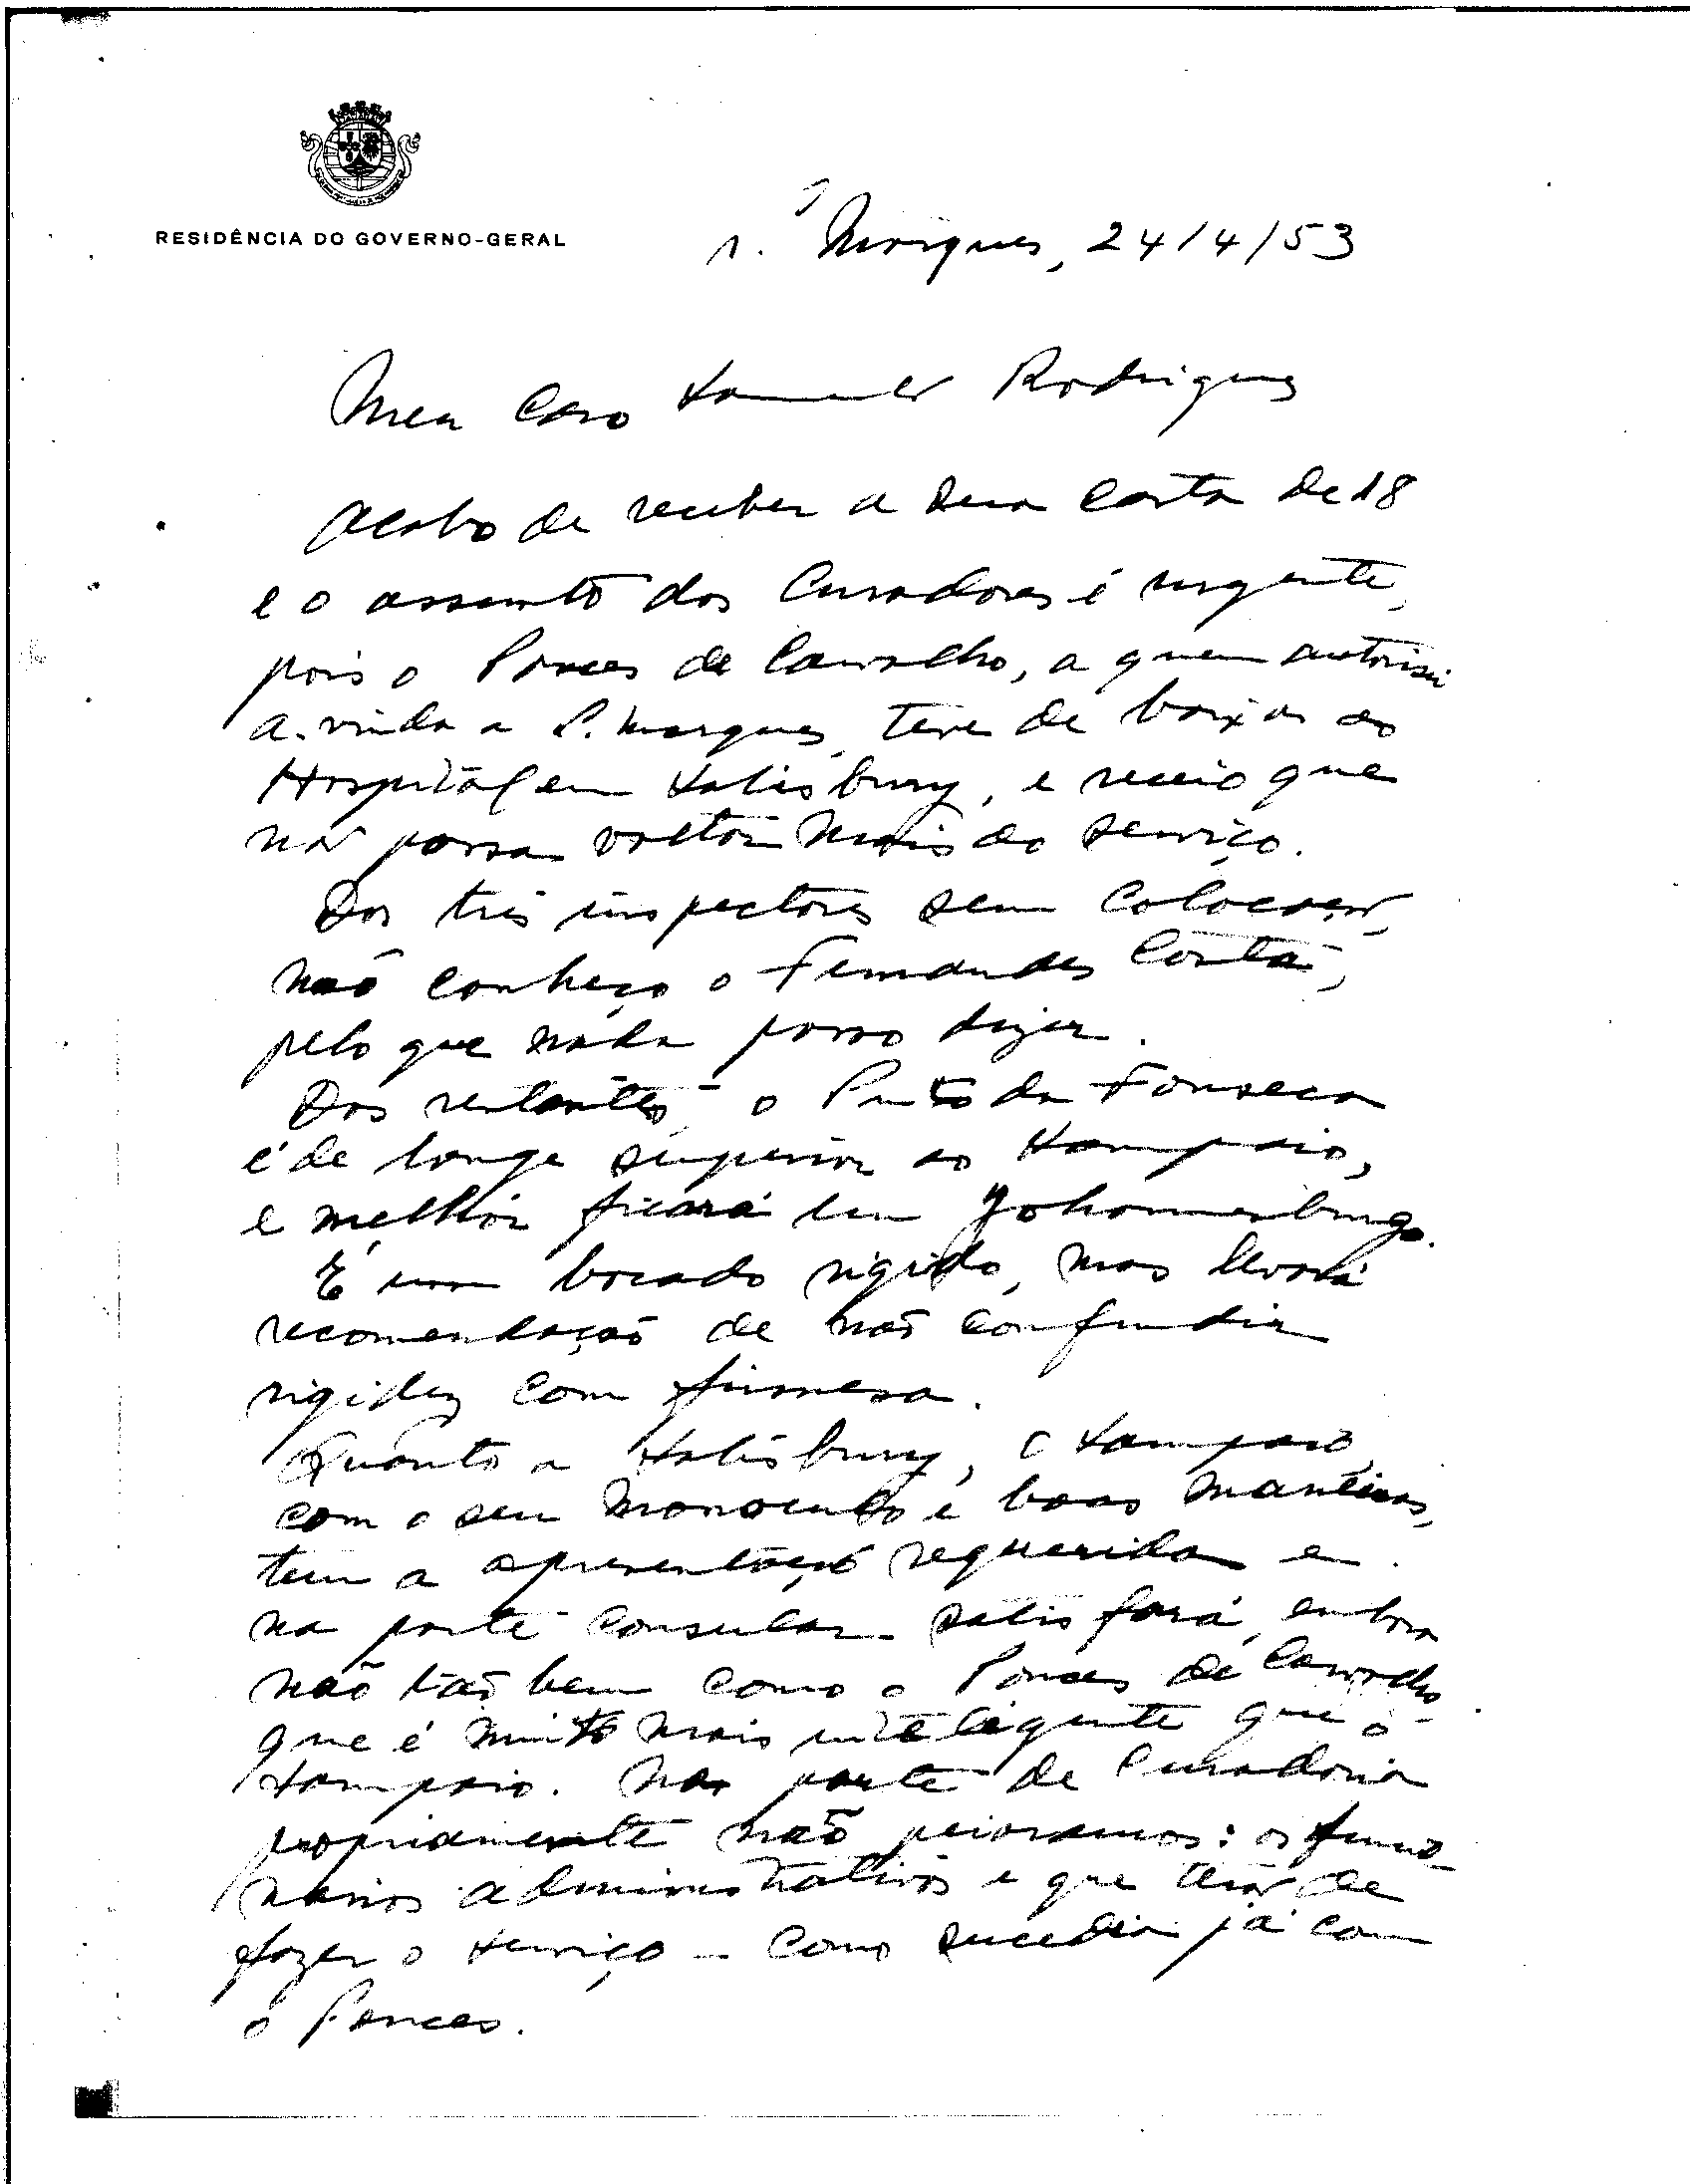 RESIDÊNCIA DO GOVERNO-GERAL
L. Marques, 24/4/53
Meu Caro Sarmento Rodrigues
Acabo de receber a sua carta de 18
e o assunto dos Curadores é urgente,
pois o Ponces de Carvalho, a quem autorisei
a vinda a L. Marques, teve de baixar ao
Hospital em Salisbury, e receio que
não possa voltar mais ao serviço.
Dos três inspectores sem colocação,
não conheço o Fernandes Costa,
pelo que nada posso dizer.
Dos restantes, o Pinto da Fonseca
é de longe superior ao Sampaio,
e melhor ficará em Johannesburgo.
É um bocado rigido, mas levará
recomendação de não confundir
rigidez com firmesa.
Quanto a Salisbury, o Sampaio
com o seu monoculo e boas maneiras,
tem a apresentação requerida e
na parte consular satisfará, embora
não tão bem como o Ponces de Carvalho
que é muito mais inteligente que o
Sampaio. Na parte de Curadoria
propriamente não peioramos: os funcio-
narios administrativos é que terão de
fazer o serviço - como sucedia já com
o Ponces.